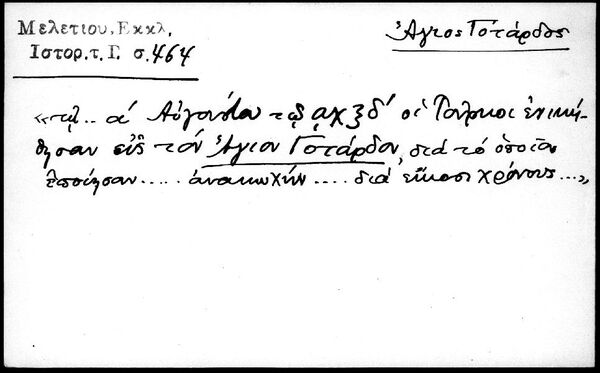 Μελετίου, Εκκλ,
Ιστορ.τ.Γ. σ.464
Ἅγιος Γοτάρδος
«τῇ.. α΄ Αὐγούστου τῷ ͵αχξδ΄ οἱ Τοῦρκοι ἐνική-
θησαν εἰς τὸν Ἅγιον Γοτάρδον, διὰ τὸ ὁποῖον
ἐποίησαν ..... ἀνακωχὴν .... διὰ εἴκοσι χρόνους ...»